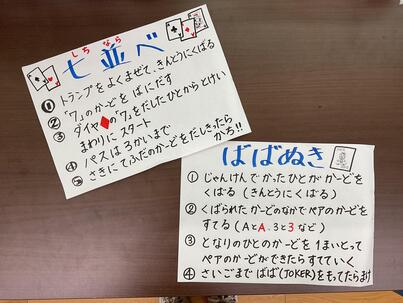 しち なら
七 並べ
① トランプをよくまぜて、きんとうにくばる
② 「7」のかーどを ばにだす
③ ダイヤ♦の「7」をだしたひとからとけい
まわりに スタート
④ パスは3かいまで
⑤ さきにてふだのかーどをだしきったら
かち!!
ばばぬき
① じゃんけんでかったひとがかーどを
くばる(きんとうにくばる)
② くばられたかーどのなかでペアのかーどを
すてる(AとA、3と3など)
③ となりのひとのかーどを1まいとって
ペアのかーどができたらすてていく
④ さいごまでばば(JOKER)をもってたらまけ